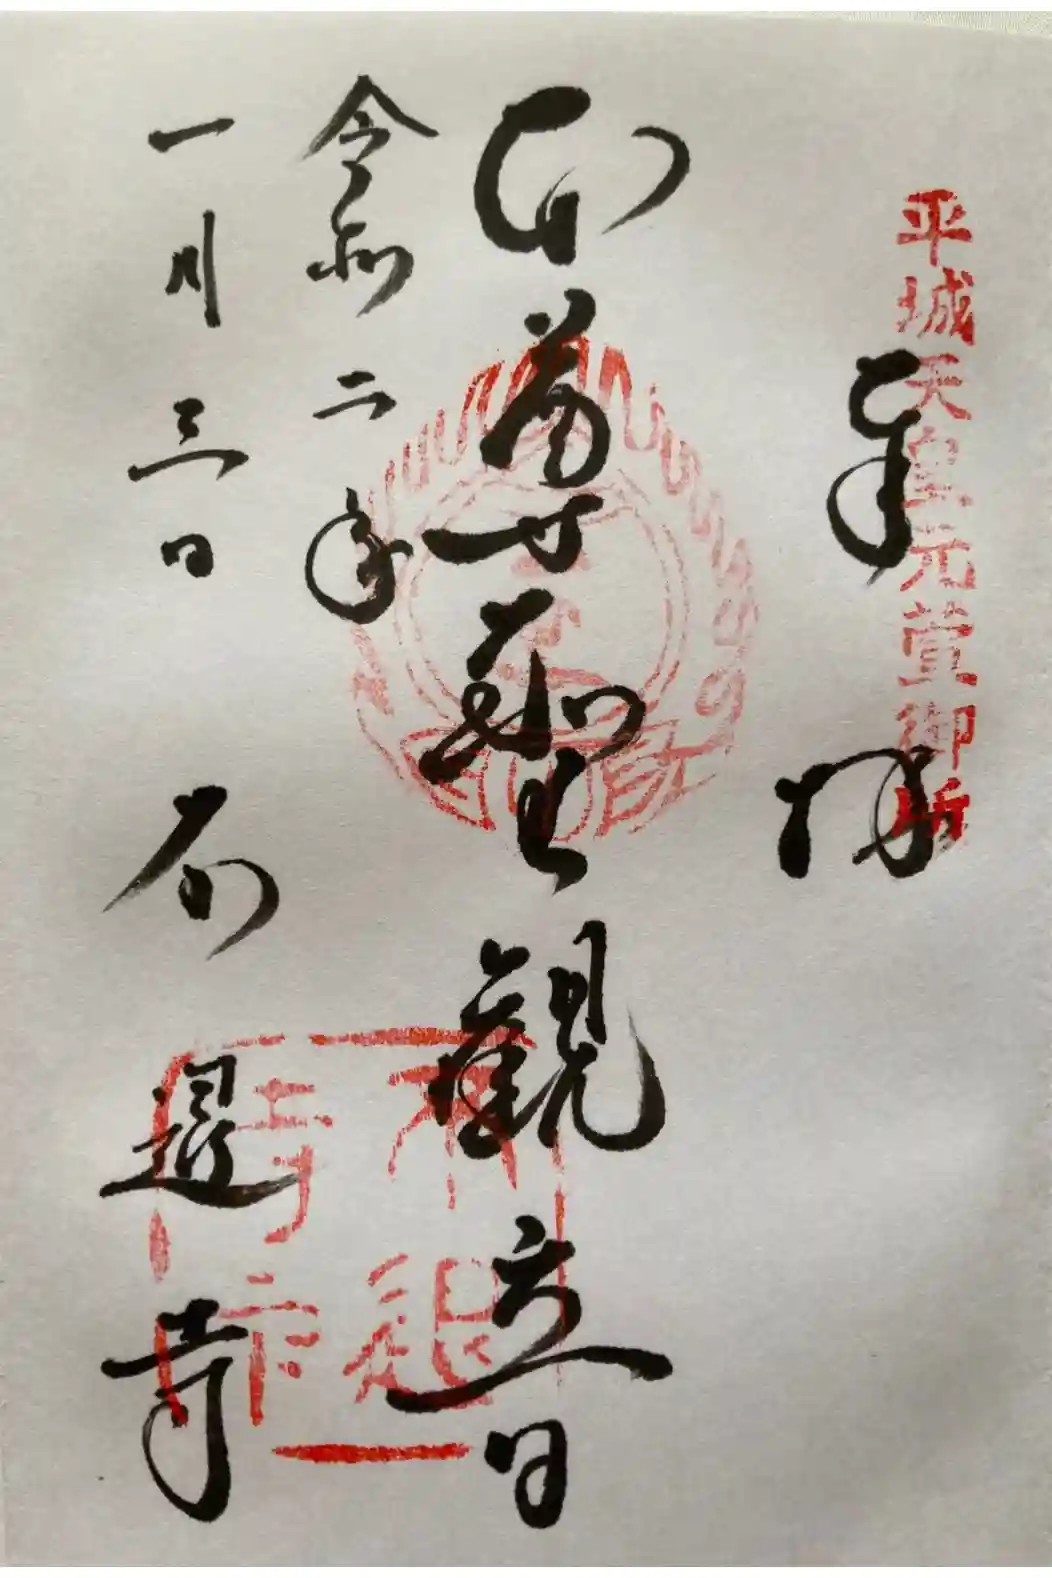 平城天皇元萱御所
奉拝
本尊聖観音
令和二年
一月三日
不退寺
不退寺印